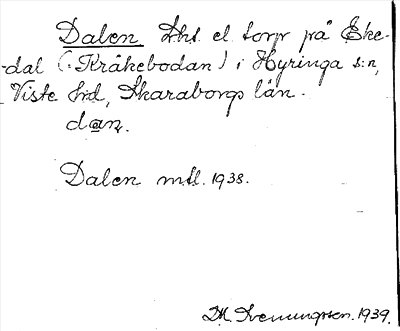 Dalen Lht. el. torp på Eke-
dal (: Kråkebodan) i Hyringa s:n,
Viste hd, Skaraborgs län.
dan.
Dalen mtl. 1938.
M. Svenungsson. 1939.